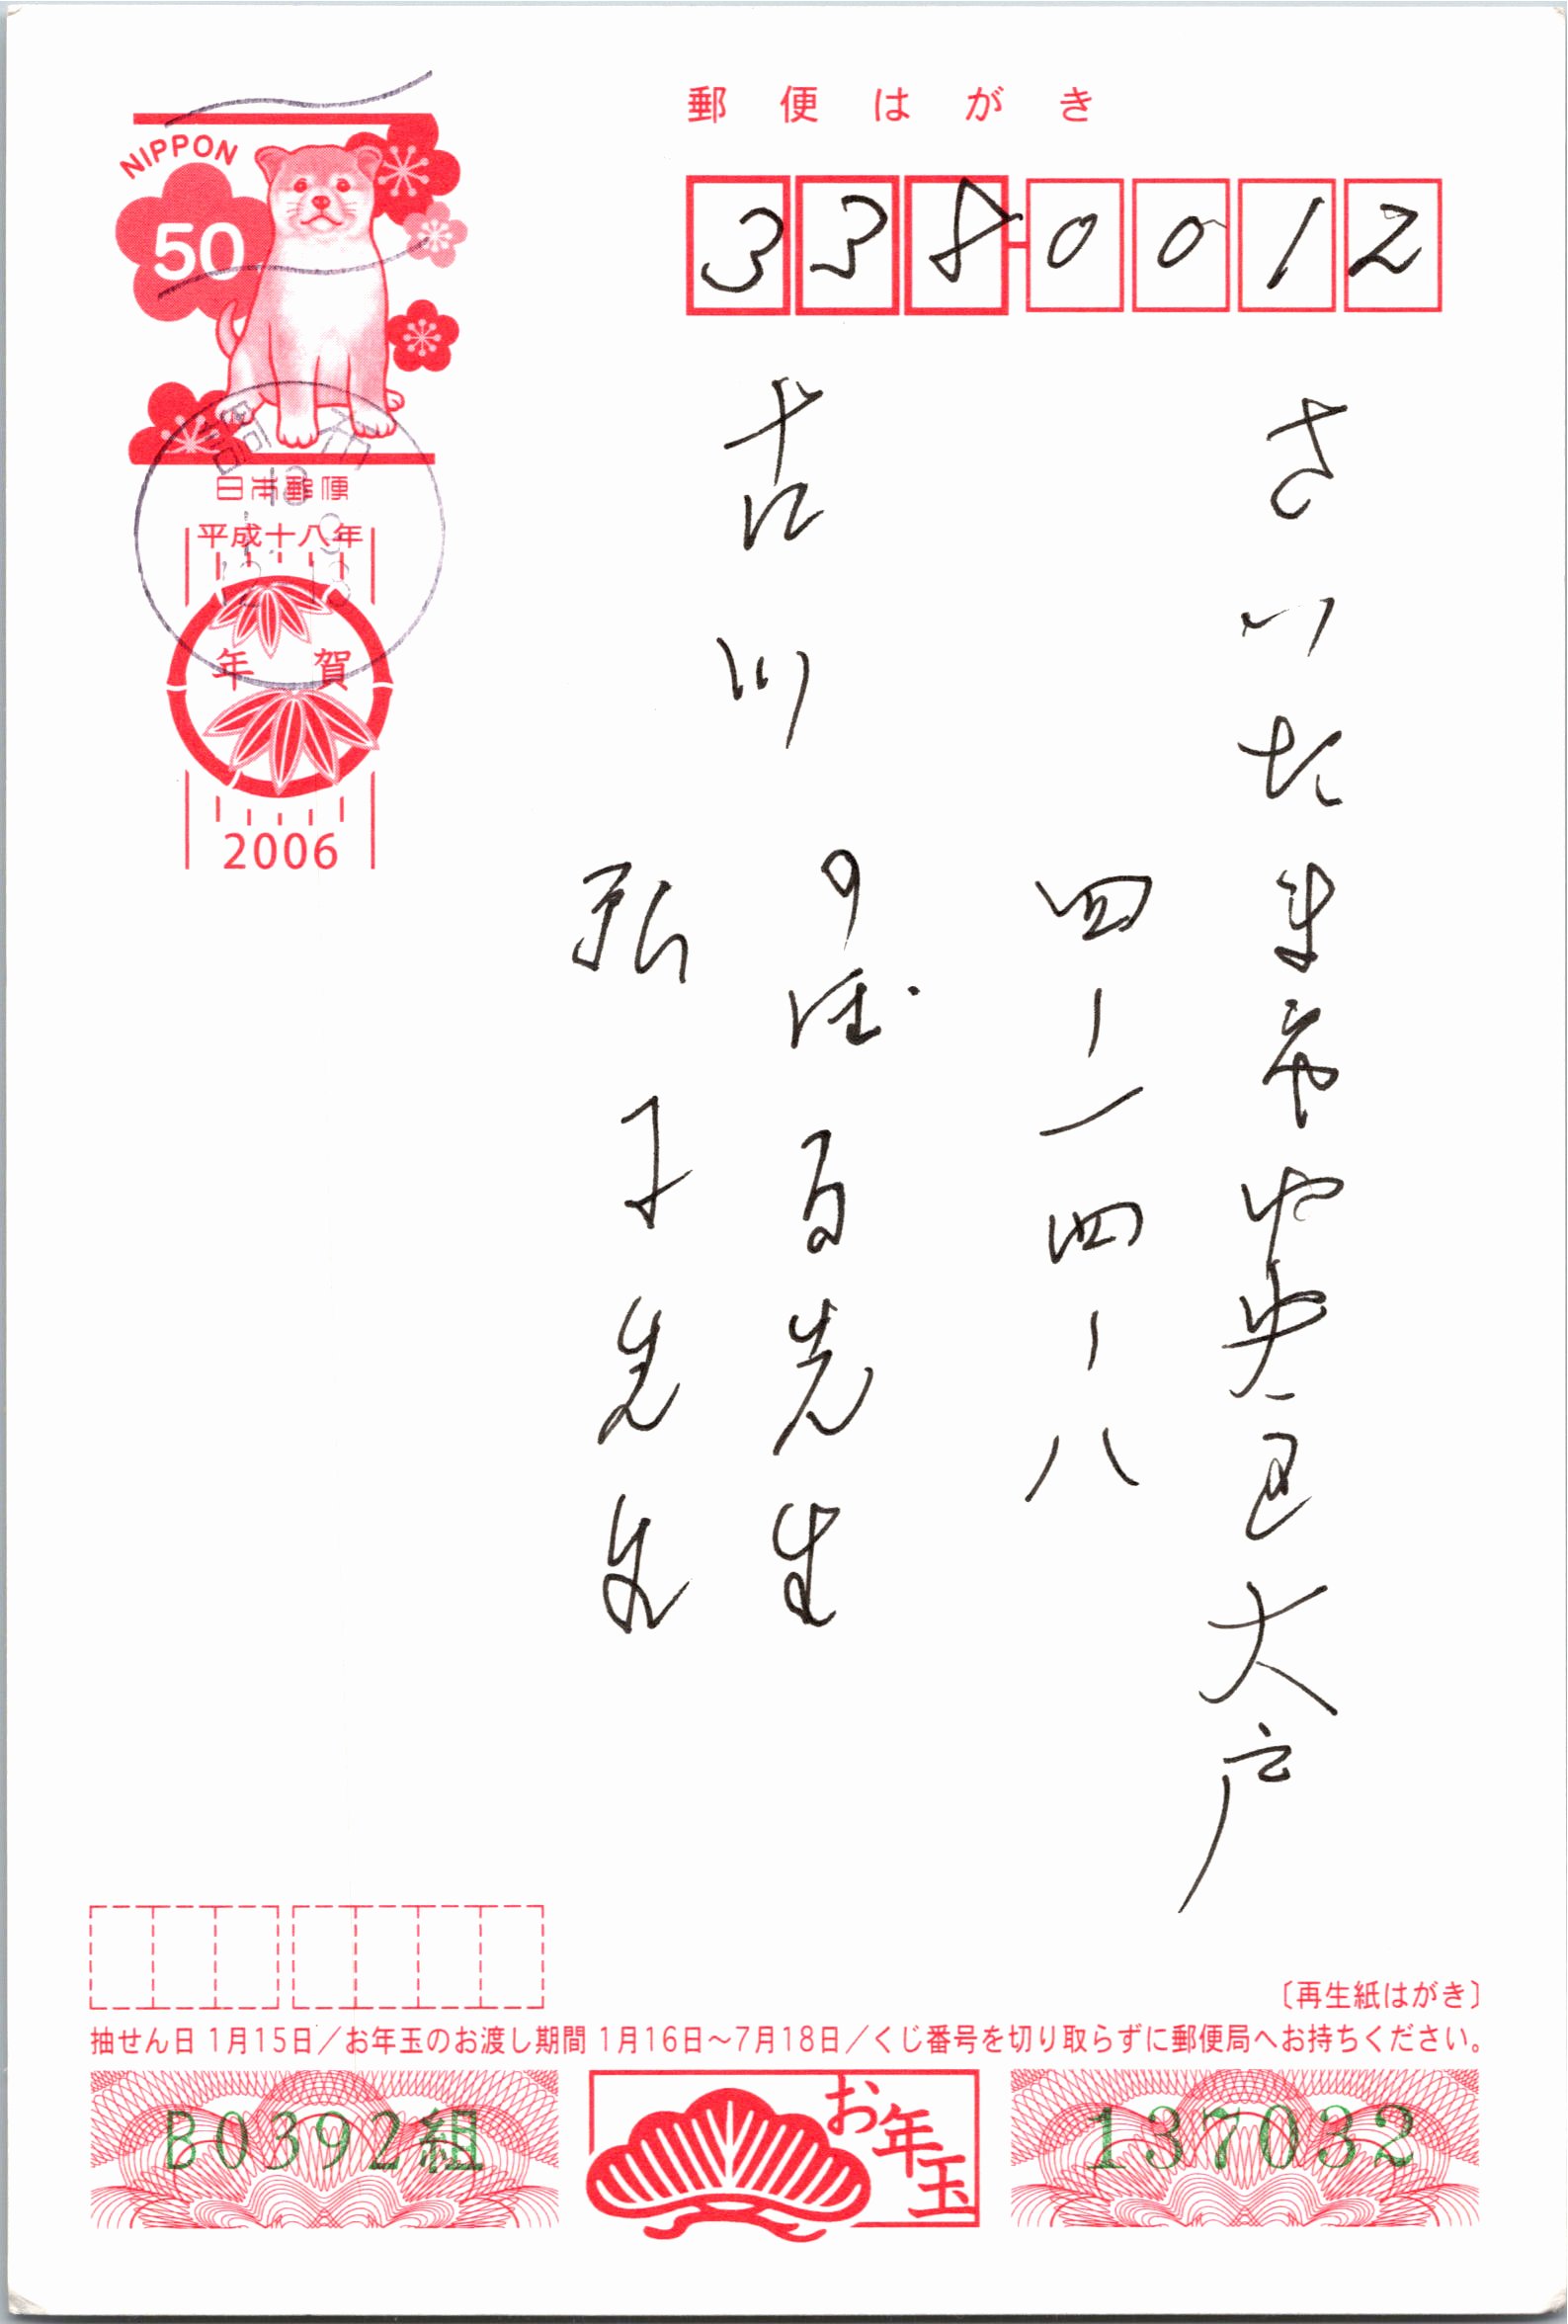 郵便はがき
NIPPON
50
日本郵便
平成十八年
年賀
2006
338-0012
さいたま市中央区大戸
四ー一四ー八
古川 百先生
弘子先生
〔再生紙はがき〕
抽せん日 1月15日／お年玉のお渡し期間 1月16日〜7月18日／くじ番号を切り取らずに郵便局へお持ちください。
B0392組
お年玉
137032